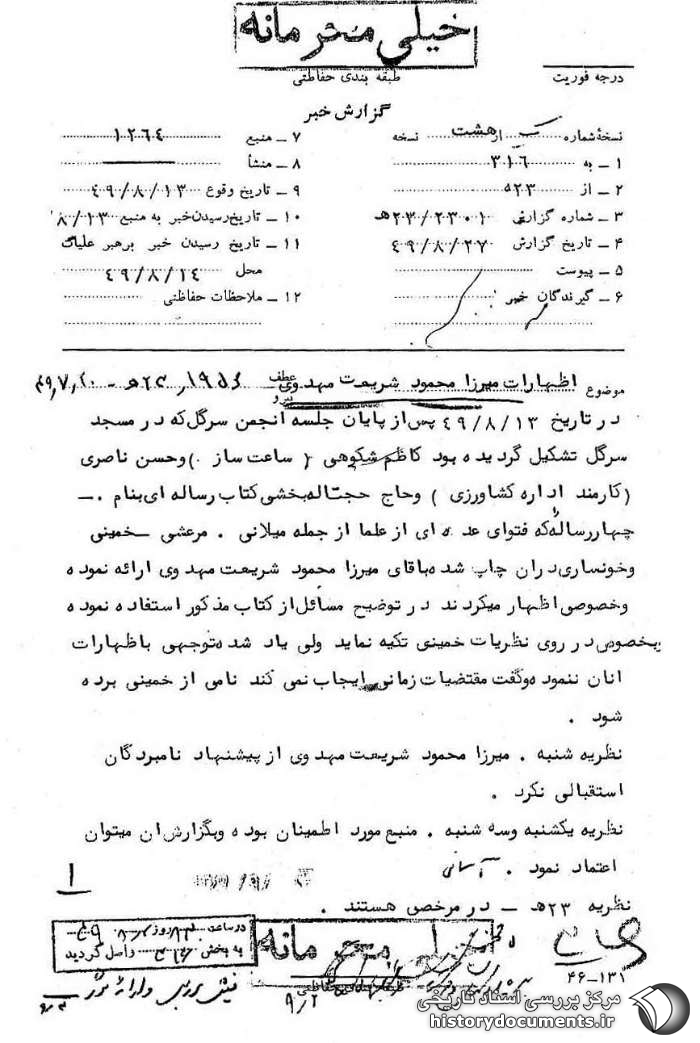 خیلی محرمانه
درجه فوریت
طبقه بندی حفاظتی
گزارش خبر
نسخهٔ شماره یک از هشت نسخه
۱ ـ به ۳۱۶
۲ ـ از ۵۲۳
۳ ـ شماره گزارش ۲۳/۲۳۰۱هـ
۴ ـ تاریخ گزارش ۴۹/۸/۲۷
۵ ـ پیوست
۶ ـ گیرندگان خبر
۷ ـ منبع ۱۲۶۴
۸ ـ منشأ
۹ ـ تاریخ وقوع ۴۹/۸/۱۳
۱۰ ـ تاریخ رسیدن خبر به منبع ۸/۱۳
۱۱ ـ تاریخ رسیدن خبر برهبر عملیات
محل ۴۹/۸/۱۴
۱۲ ـ ملاحظات حفاظتی
موضوع اظهارات میرزا محمود شریعت مهدوی عطف پیرو ۱۹۵۶ / ۲۳هـ - ۴۹٫۷٫۲۰
در تاریخ ۴۹/۸/۱۳ پس از پایان جلسه انجمن سرگل که در مسجد
سرگل تشکیل گردیده بود کاظم شکوهی ( ساعت ساز ) وحسن ناصری
(کارمند اداره کشاورزی ) وحاج حجت اله بخشی کتاب رساله ای بنام ـ
چهاررساله که فتوای عده ای از علما از جمله میلانی . مرعشی ـ خمینی
وخونساری دران چاپ شده باقای میرزا محمود شریعت مهدوی ارائه نموده
وخصوصی اظهار میکردند در توضیح مسائل از کتاب مذکور استفاده نموده
بخصوص در روی نظریات خمینی تکیه نماید ولی یاد شده توجهی باظهارات
انان ننموده وگفت مقتضیات زمانی ایجاب نمی کند نامی از خمینی برده
شود .
نظریه شنبه . میرزا محمود شریعت مهدوی از پیشنهاد نامبردگان
استقبالی نکرد .
نظریه یکشنبه وسه شنبه . منبع مورد اطمینان بوده وبگزارش ان میتوان
اعتماد نمود . آسانی
۱
نظریه ۲۳هـ ـ در مرخصی هستند .
در ساعت روز
به بخش واصل گردید
خیلی محرمانه
طبقه بندی حفاظتی
۹/۲
۴۶-۱۳۱
مرکز بررسی اسناد تاریخی
historydocuments.ir